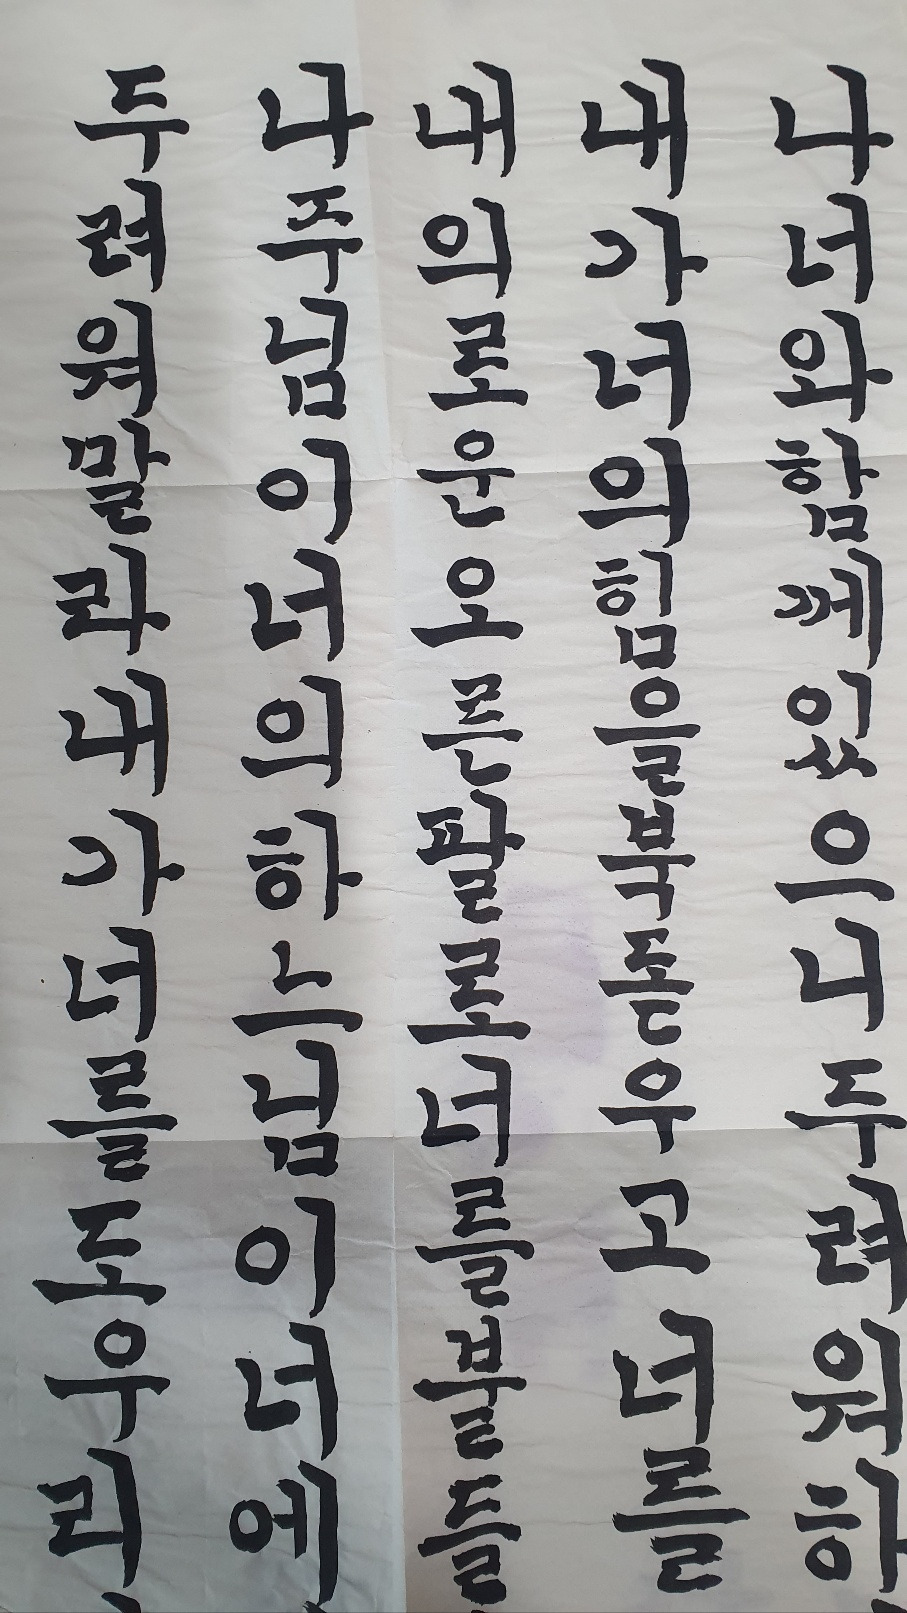 나너와함께있으니두려워하
내가너의힘을북돋우고너를
내의로운오른팔로너를붙들
나주님이너의하느님이너에
두려워말라내가너를도우리